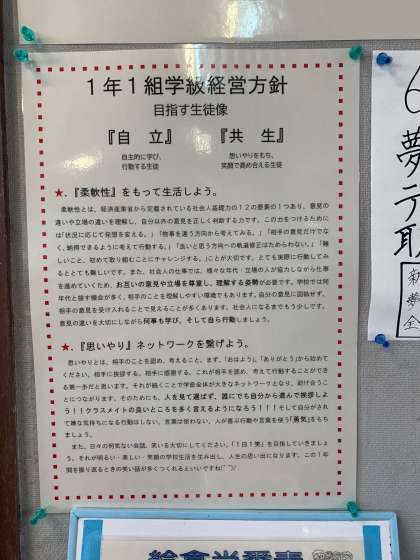 1年1組学級経営方針
目指す生徒像
『自 立』 『共 生』
自主的に学び、 思いやりをもち、
行動する生徒 笑顔で高め合える生徒
★.『柔軟性』をもって生活しよう。
柔軟性とは、経済産業省から定義されている社会人基礎力の12の要素の1つあり、意見の
違いや立場の違いを理解し、自分以外の意見を正しく判断する力です。この力をつけるために
は「状況に応じて発想を変える。」「物事を違う方向から考えてみる。」「相手の意見だけでな
く、納得できるように考えて行動する。」「良いと思う方向への軌道修正はためらわない。」「難し
いこと、初めて取り組むことにチャレンジする。」ことが大切です。とても実際に行動してみ
るととても難しいです。また、社会人の仕事では、様々な年代・立場の人が協力しながら仕事
を進めていくため、お互いの意見や立場を尊重し、理解する姿勢が必要です。学校では同
年代と接する機会が多く、相手のことを理解しやすい環境でもあります。自分の意見に固執せず、
相手の意見を受け入れることで見えることが多くあります。社会人になるまでもう少しです。
意見の違いを大切にしながら何事も学び、そして自ら行動しましょう。
★.『思いやり』ネットワークを繋げよう。
思いやりとは、相手のことを認め、考えること。まず、「おはよう」、「ありがとう」から始めて
ください。相手に挨拶する。相手に感謝する。これが相手を認め、考えて行動することができ
る第一歩だと思います。それが続くことで学級全体が大きなネットワークとなり、助け合うこ
とにつながります。そのためにも、人を見て選ばず、誰にでも自分から進んで挨拶しよ
う!!クラスメイトの良いところを多く言えるようになろう!!!そして自分がされ
て嫌な気持ちになる行動はしない、言葉は使わない、人が喜ぶ行動や言葉を使う「勇気」をもち
ましょう。
また、日々の何気ない会話、笑いを大切にしてください。「1日1笑」を目指していきましょ
う。それが明るい・楽しい・笑顔の学校生活を生み出し、人生の思い出になります。この1年
間を振り返るときの笑い話が多くつくれるといいですね(^^)/
夢